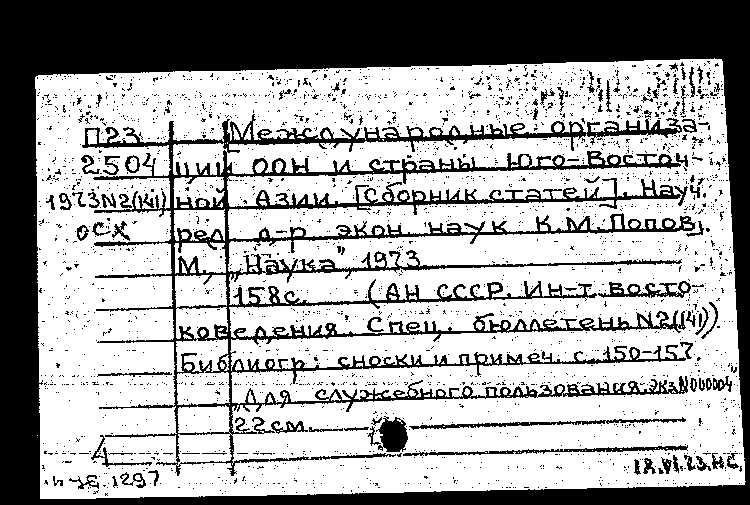 П23 Международные организа-
2504 ции ООН и страны Юго-Восточ-
1973N2(141) ной Азии. [Сборник статей]. Науч.
осх ред. д-р экон. наук К.М.Попов.
М., „Наука", 1973.
158с. (АН СССР. Ин-т восто-
коведения. Спец. бюллетень N2(141))
Библиогр: сноски и примеч. с. 150-157.
„Для служебного пользования экзN000004"
22см.
4
1297